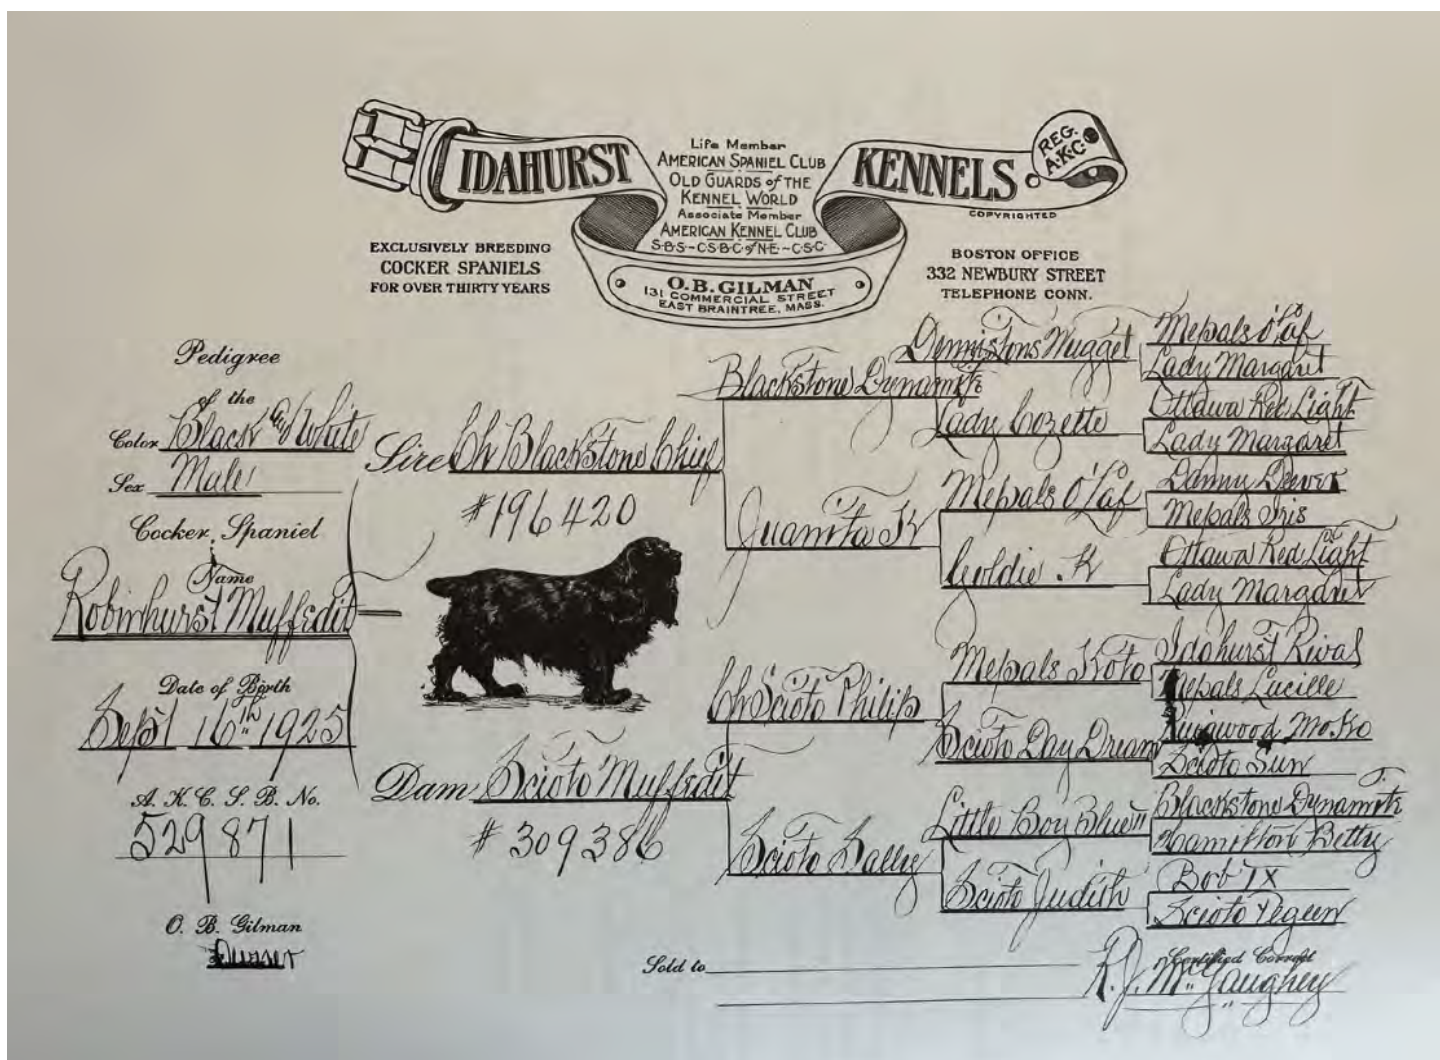 IDAHURST KENNELS
REG. A.K.C.
COPYRIGHTED
Life Member
AMERICAN SPANIEL CLUB
OLD GUARDS of THE
KENNEL WORLD
Associate Member
AMERICAN KENNEL CLUB
S·B·S~C·S·B·C of N·E~C·S·C·
O.B. GILMAN
131 COMMERCIAL STREET
EAST BRAINTREE, MASS.
EXCLUSIVELY BREEDING
COCKER SPANIELS
FOR OVER THIRTY YEARS
BOSTON OFFICE
332 NEWBURY STREET
TELEPHONE CONN.
Pedigree
of the
Color Black and White
Sex Male
Cocker Spaniel
Name
Robinhurst Muffedit
Date of Birth
Sept 16th 1925
A. K. C. S. B. No.
529871
O. B. Gilman
Owner
Sire Ch Blackstone Chief
#196420
Dam Scioto Muffedit
#309386
Blackstone Dynamite
Juanita K
Ch Scioto Philip
Scioto Sally
Dennistons Nugget
Lady Cozette
Mepals O'Laf
Goldie K
Mepals Koto
Scioto Day Dream
Little Boy Blue II
Scioto Judith
Mepals O'Laf
Lady Margaret
Ottawa Red Light
Lady Margaret
Danny Deever
Mepals Iris
Ottawa Red Light
Lady Margaret
Idahurst Rival
Mepals Lucille
Mo Ko
Scioto Sun
Blackstone Dynamite
Hamilton Betty
Bob IX
Scioto Pegeen
Sold to
Certified Correct
R. J. McGaughey